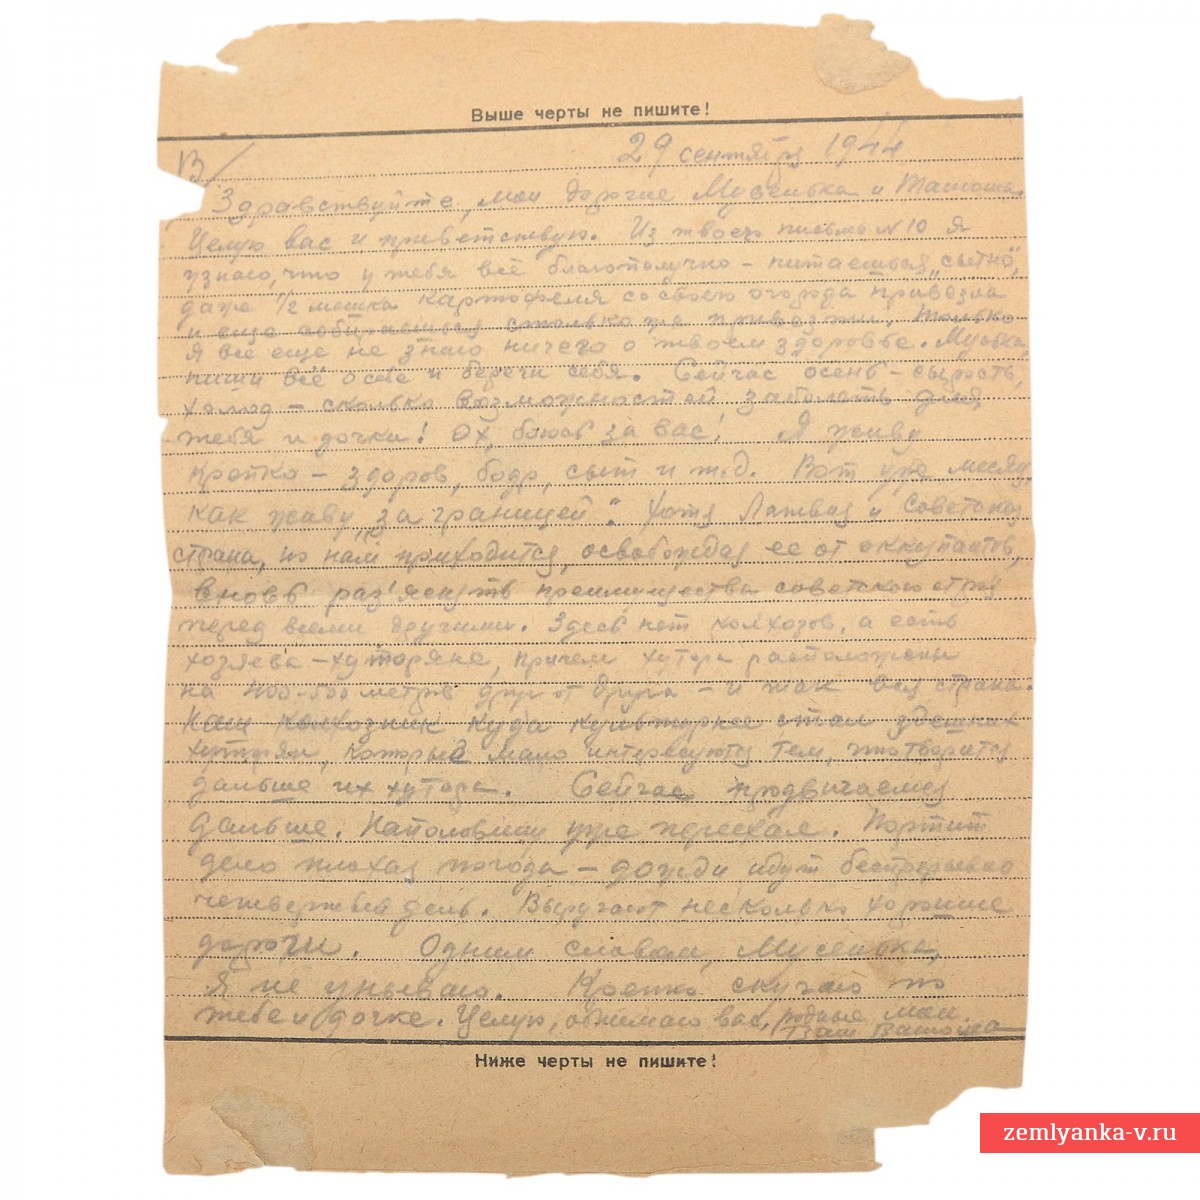 Выше черты не пишите!
В/
29 сентября 1944
Здравствуйте, мои дорогие Мусенька и Таточка.
Целую вас и приветствую. Из твоего письма №10 я
узнаю, что у тебя всё благополучно – питаешься „сытно",
даже 1/2 мешка картофеля со своего огорода привезла
и еще собираешься столько же привезти. Только
я всё еще не знаю ничего о твоем здоровье. Муська,
пиши всё о себе и береги себя. Сейчас осень – сырость,
холод – сколько возможностей заболеть для
тебя и дочки! Ох, боюсь за вас! Я живу
крепко – здоров, бодр, сыт и т.д. Вот уже месяц,
как живу „за границей". Хотя Латвия и Советская
страна, но нам приходится, освобождая ее от оккупантов,
вновь раз'яснять преимущества советского строя
перед всеми другими. Здесь нет колхозов, а есть
хозяева – хуторяне, причем хутора расположены
на 400-500 метров друг от друга – и так вся страна.
Наш колхозник куда культурнее стал здешних
хуторян, которые мало интересуются тем, что творится
дальше их хутора. Сейчас продвигаемся
дальше. Наполовину уже переехал. Портит
дело плохая погода – дожди идут беспрерывно
четвертый день. Выручают несколько хорошие
дороги. Одним словом, Мусенька,
я не унываю. Крепко скучаю по
тебе и дочке. Целую, обнимаю вас, родные мои.
Ваш
Ниже черты не пишите!
zemlyanka-v.ru